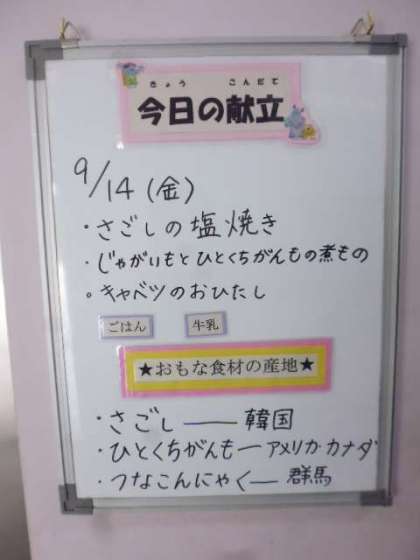 きょう こんだて
今日の献立
9/14(金)
・さごしの塩焼き
・じゃがいもとひとくちがんもの煮もの
。キャベツのおひたし
ごはん 牛乳
★おもな食材の産地★
・さごし——韓国
・ひとくちがんもーアメリカ・カナダ
・つなこんにゃく—群馬